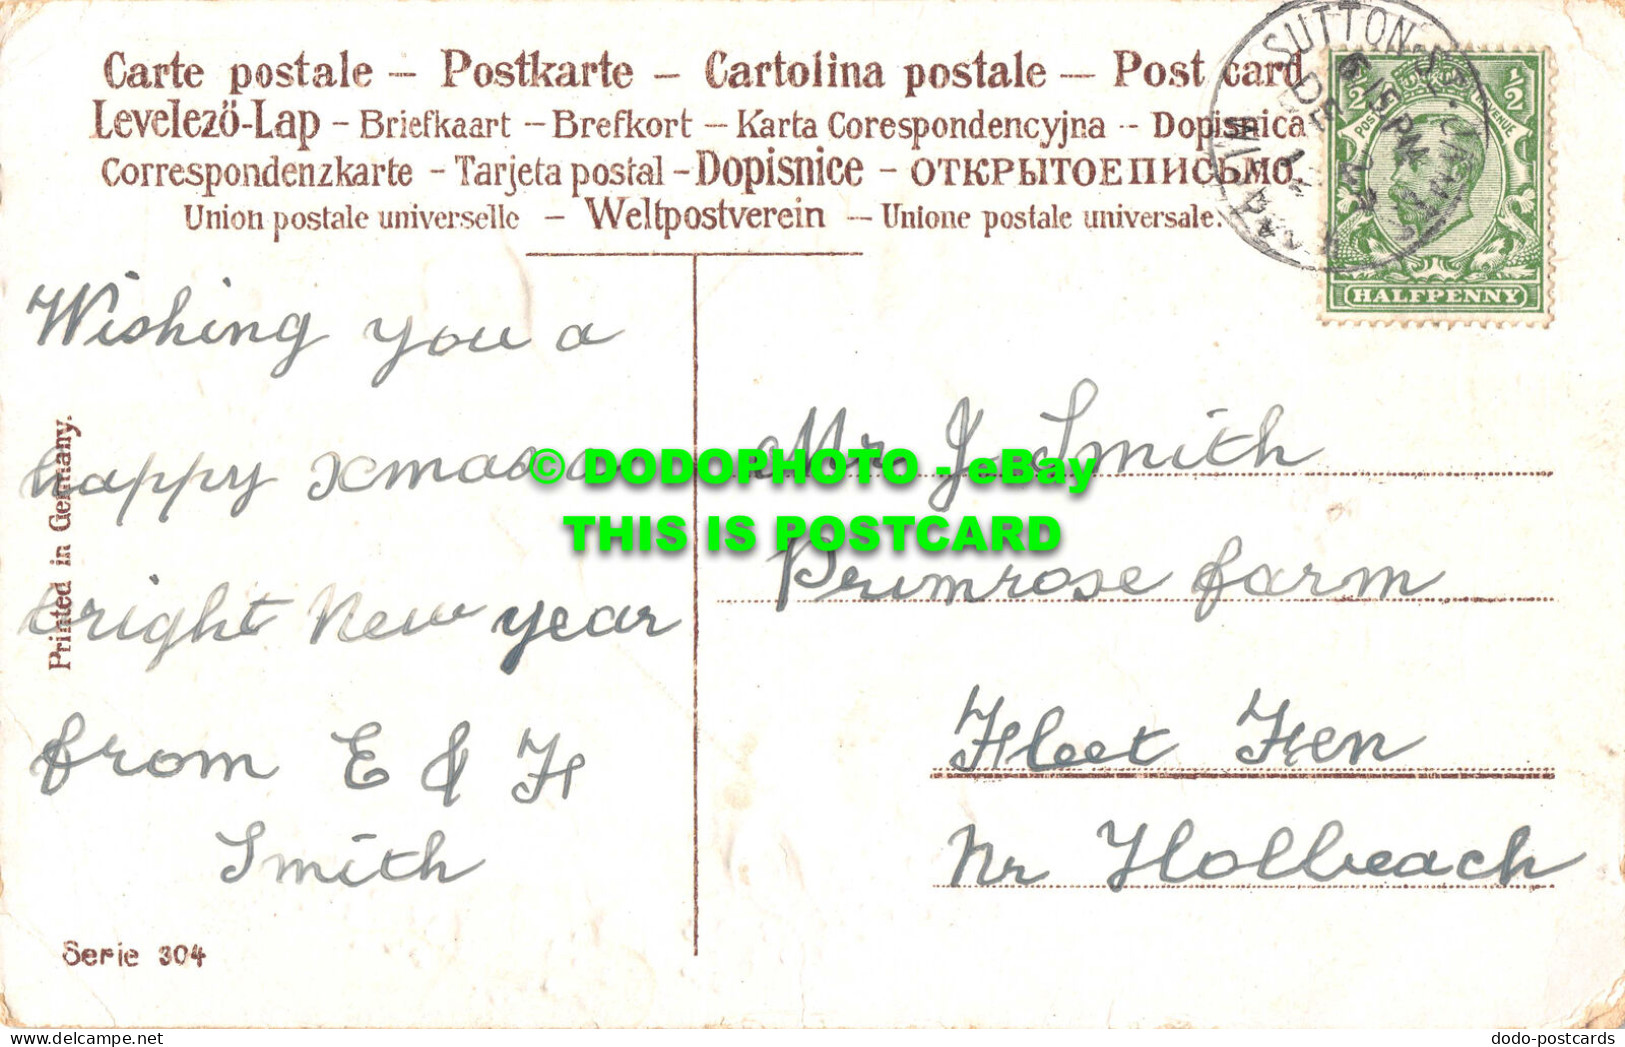 Carte postale — Postkarte — Cartolina postale — Post card
Levelező-Lap – Briefkaart – Brefkort – Karta Corespondencyjna – Dopisnica
Correspondenzkarte – Tarjeta postal – Dopisnice – ОТКРЫТОЕ ПИСЬМО
Union postale universelle — Weltpostverein — Unione postale universale.
SUTTON
6 15 PM
DE
POSTAGE REVENUE
1/2
1/2
HALFPENNY
Wishing you a
happy xmas a
bright New year
from E & H
Smith
Printed in Germany.
Serie 304
Mr J Smith
Primrose farm
Fleet Fen
Nr Holbeach
© DODOPHOTO - eBay
THIS IS POSTCARD
dodo-postcards